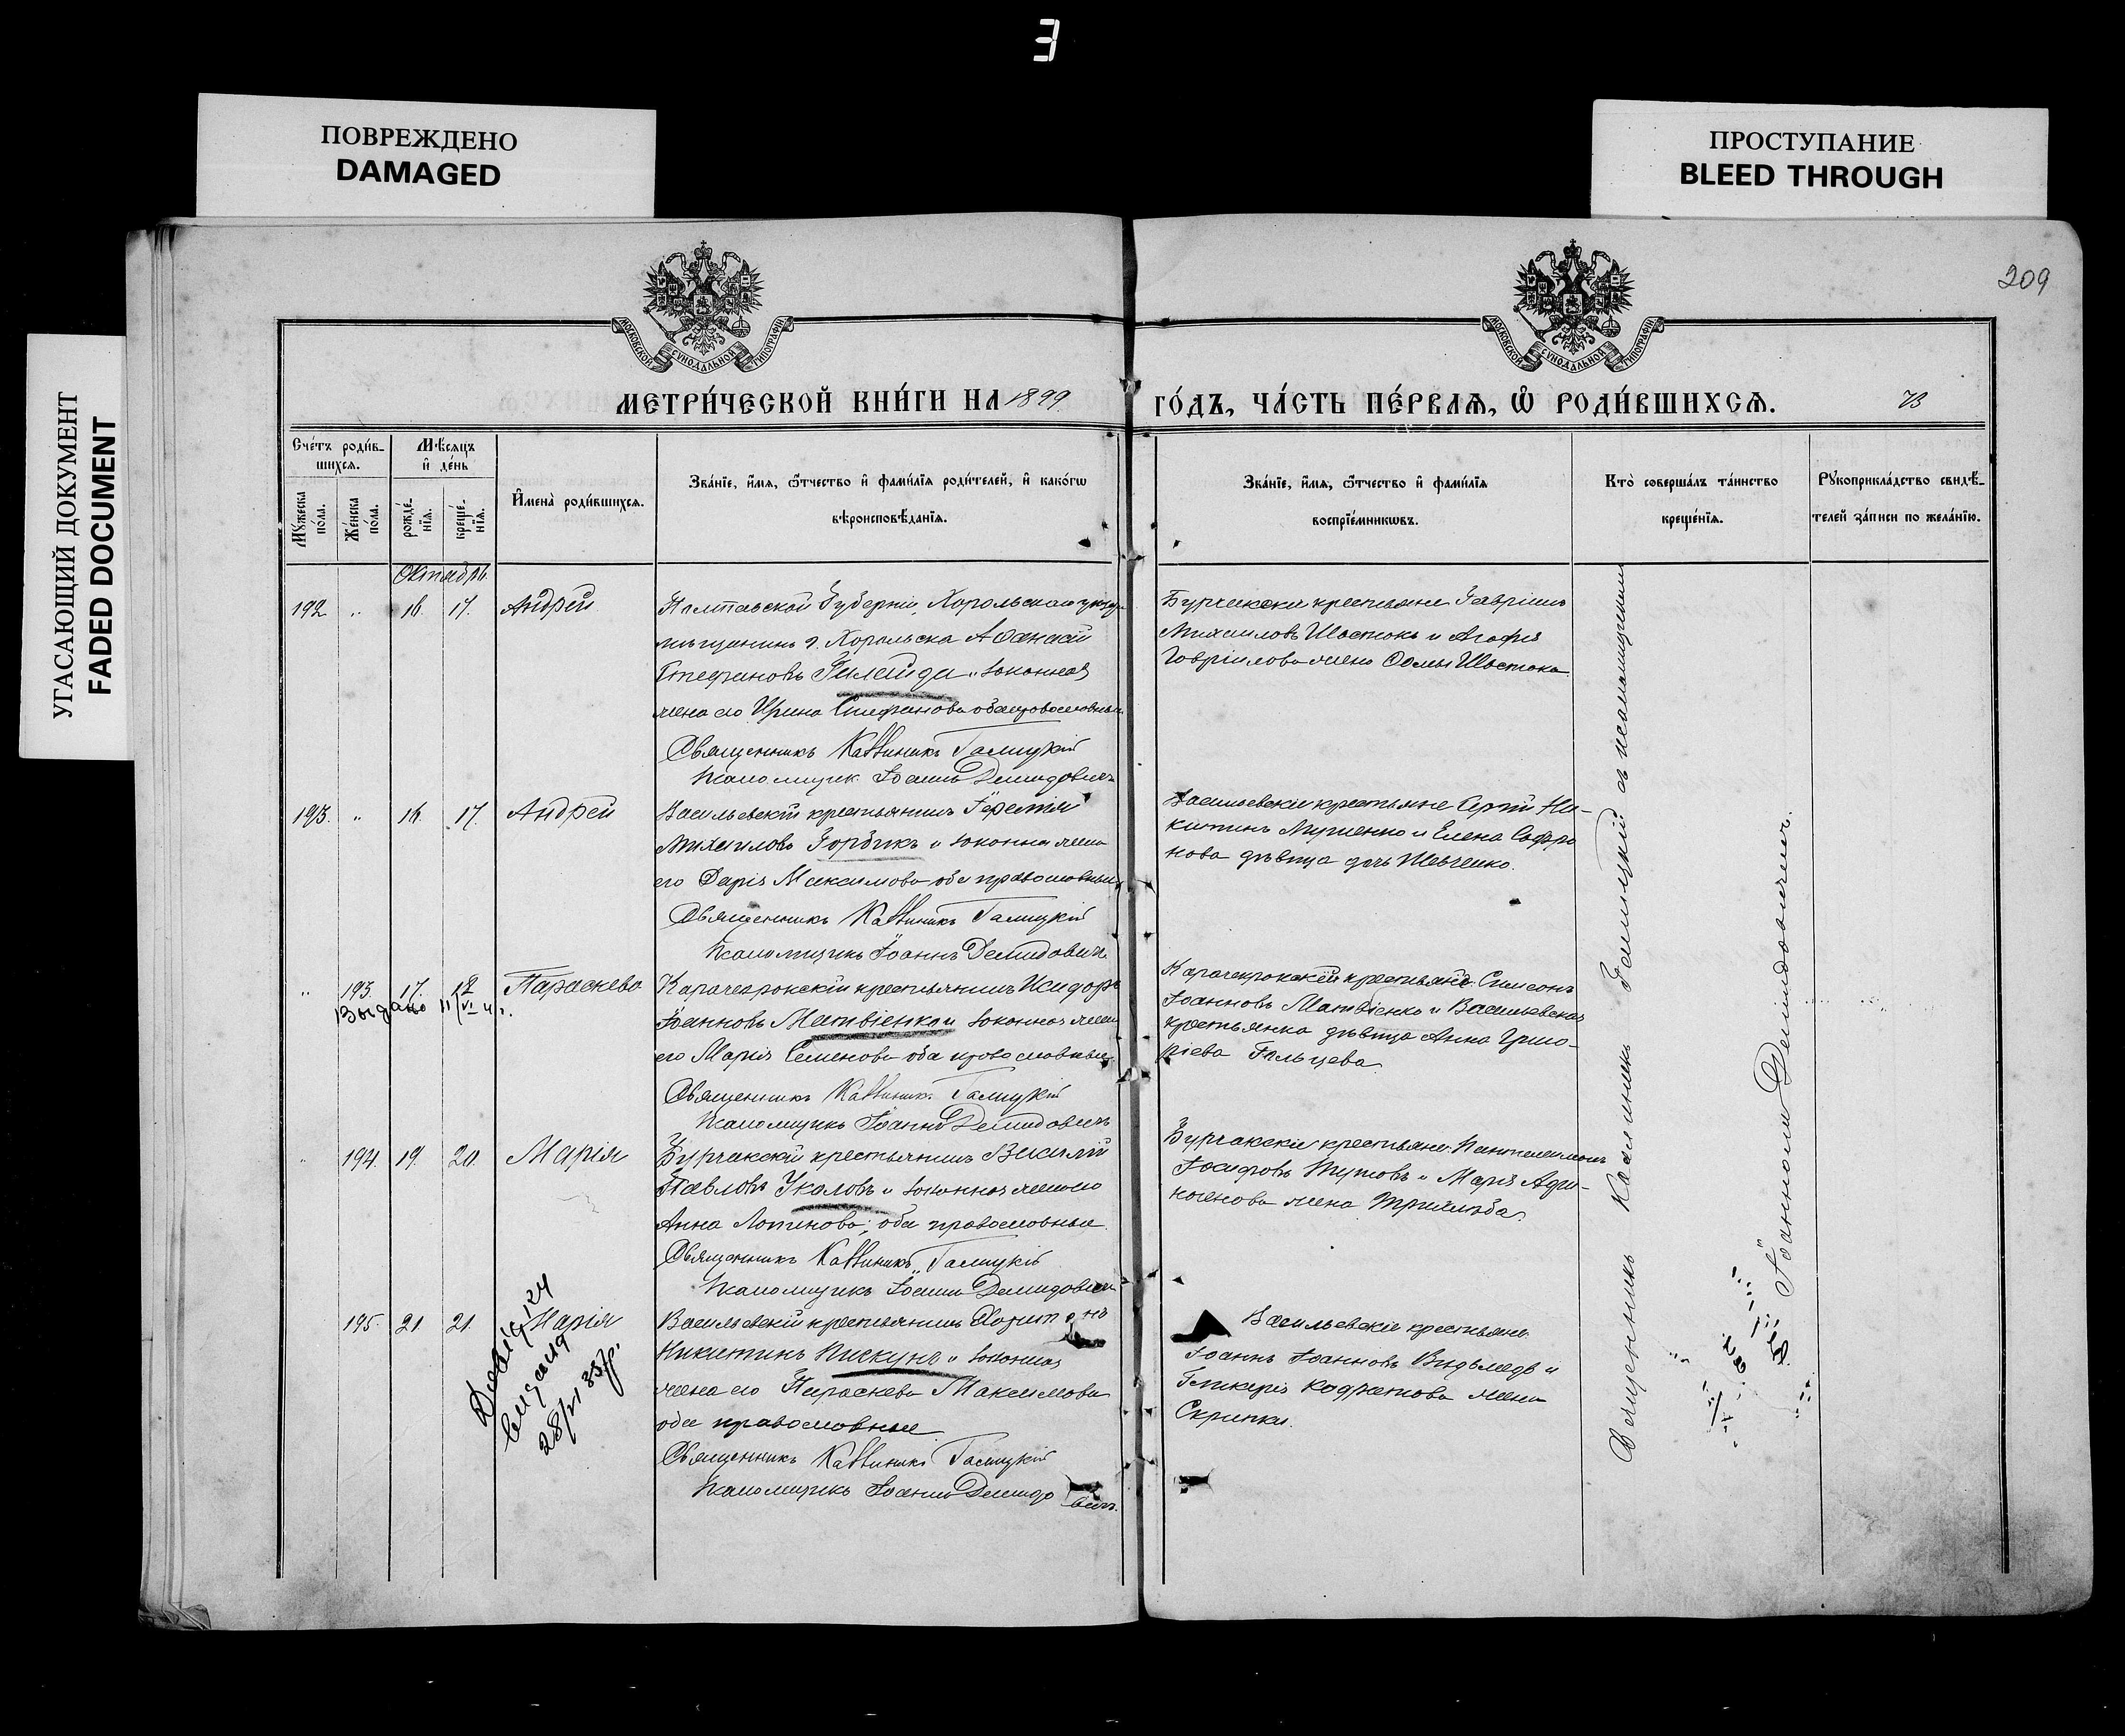 E
ПОВРЕЖДЕНО
DAMAGED
ПРОСТУПАНИЕ
BLEED THROUGH
УГАСАЮЩИЙ ДОКУМЕНТ
FADED DOCUMENT
209
МОСКОВСКОЙ СѴНОДАЛЬНОЙ ТИПОГРАФІИ
МОСКОВСКОЙ СѴНОДАЛЬНОЙ ТИПОГРАФІИ
МЕТРИ́ЧЕСКОЙ КНИ́ГИ НА 1899 ГО́ДЪ, ЧА́СТЬ ПЕ́РВАѦ, Ѡ РОДИ́ВШИХСѦ.
73
Сче́тъ роди́в-
шихсѧ.
Мѣ́сяцъ
и҆ де́нь
Мꙋ́жеска
по́ла.
Же́нска
по́ла.
рожде́-
нїѧ.
креще́-
нїѧ.
И҆мена̀ роди́вшихсѧ.
Зва́нїе, и҆́мѧ, ѻ҆́тчество и҆ фами́лїѧ роди́телей, и҆ како́гѡ
вѣроисповѣ́данїѧ.
Зва́нїе, и҆́мѧ, ѻ҆́тчество и҆ фами́лїѧ
воспрїе́мникѡвъ.
Кто̀ соверша́лъ та́инство
креще́нїѧ.
Рꙋкоприкла́дство свидѣ́-
телей за́писи по жела́нїю.
Октябрь
192 " 16. 17. Андрей
Полтавской Губерніи, Хорольскаго уѣзда
мѣщанинъ г. Хорольска Аѳанасій
Стефановъ и законная
жена его Ирина Стефанова оба православные
Священникъ Каллиникъ Галицкій
Псаломщикъ Іоаннъ Демидовичъ
Бурчакскіе крестьяне Гавріилъ
Михаиловъ Шостокъ и Агафія
Гавріилова жена Ѳомы Шостока
193. " 16. 17. Андрей
Васильевскій крестьянинъ
Михаиловъ Горбикъ и законная жена
его Дарія Максимова оба православные
Священникъ Каллиникъ Галицкій
Псаломщикъ Іоаннъ Демидовичъ
Васильевскіе крестьяне Сергій Ни-
китинъ и Елена Софро
нова дѣвица дочь Шевченко.
" 193. 17. 18 Параскева
Выдано 11/VI
Карачекракскій крестьянинъ Исидоръ
Іоанновъ Матвіенко и законная жена
его Марія Семенова оба православные
Священникъ Каллиникъ Галицкій
Псаломщикъ Іоаннъ Демидовичъ
Карачекракскій крестьянинъ Симеонъ
Іоанновъ Матвіенко и Васильевская
крестьянка дѣвица Анна Григо-
ріева Гальцева
" 194. 19. 20. Марія
Бурчакскій крестьянинъ Василій
Павловъ Укаловъ и законная жена его
Анна Логинова; оба православные.
Священникъ Каллиникъ Галицкій
Псаломщикъ Іоаннъ Демидовичъ
Бурчакскіе крестьяне Пантелеимонъ
Іосифовъ и Марія
жена
195. 21 21. Марія
Довідку
видана
28/VI 35р.
Васильевскій крестьянинъ Харитонъ
Никитинъ Пискунъ и законная
жена его Параскева Максимова
оба православные
Священникъ Каллиникъ Галицкій
Псаломщикъ Іоаннъ Демидовичъ.
Васильевскіе крестьяне
Іоаннъ Іоанновъ и
Гликерія Кодратова жена
Скрипки.
Священникъ Каллиникъ Галицкій съ псаломщикомъ
Іоанномъ Демидовичемъ.